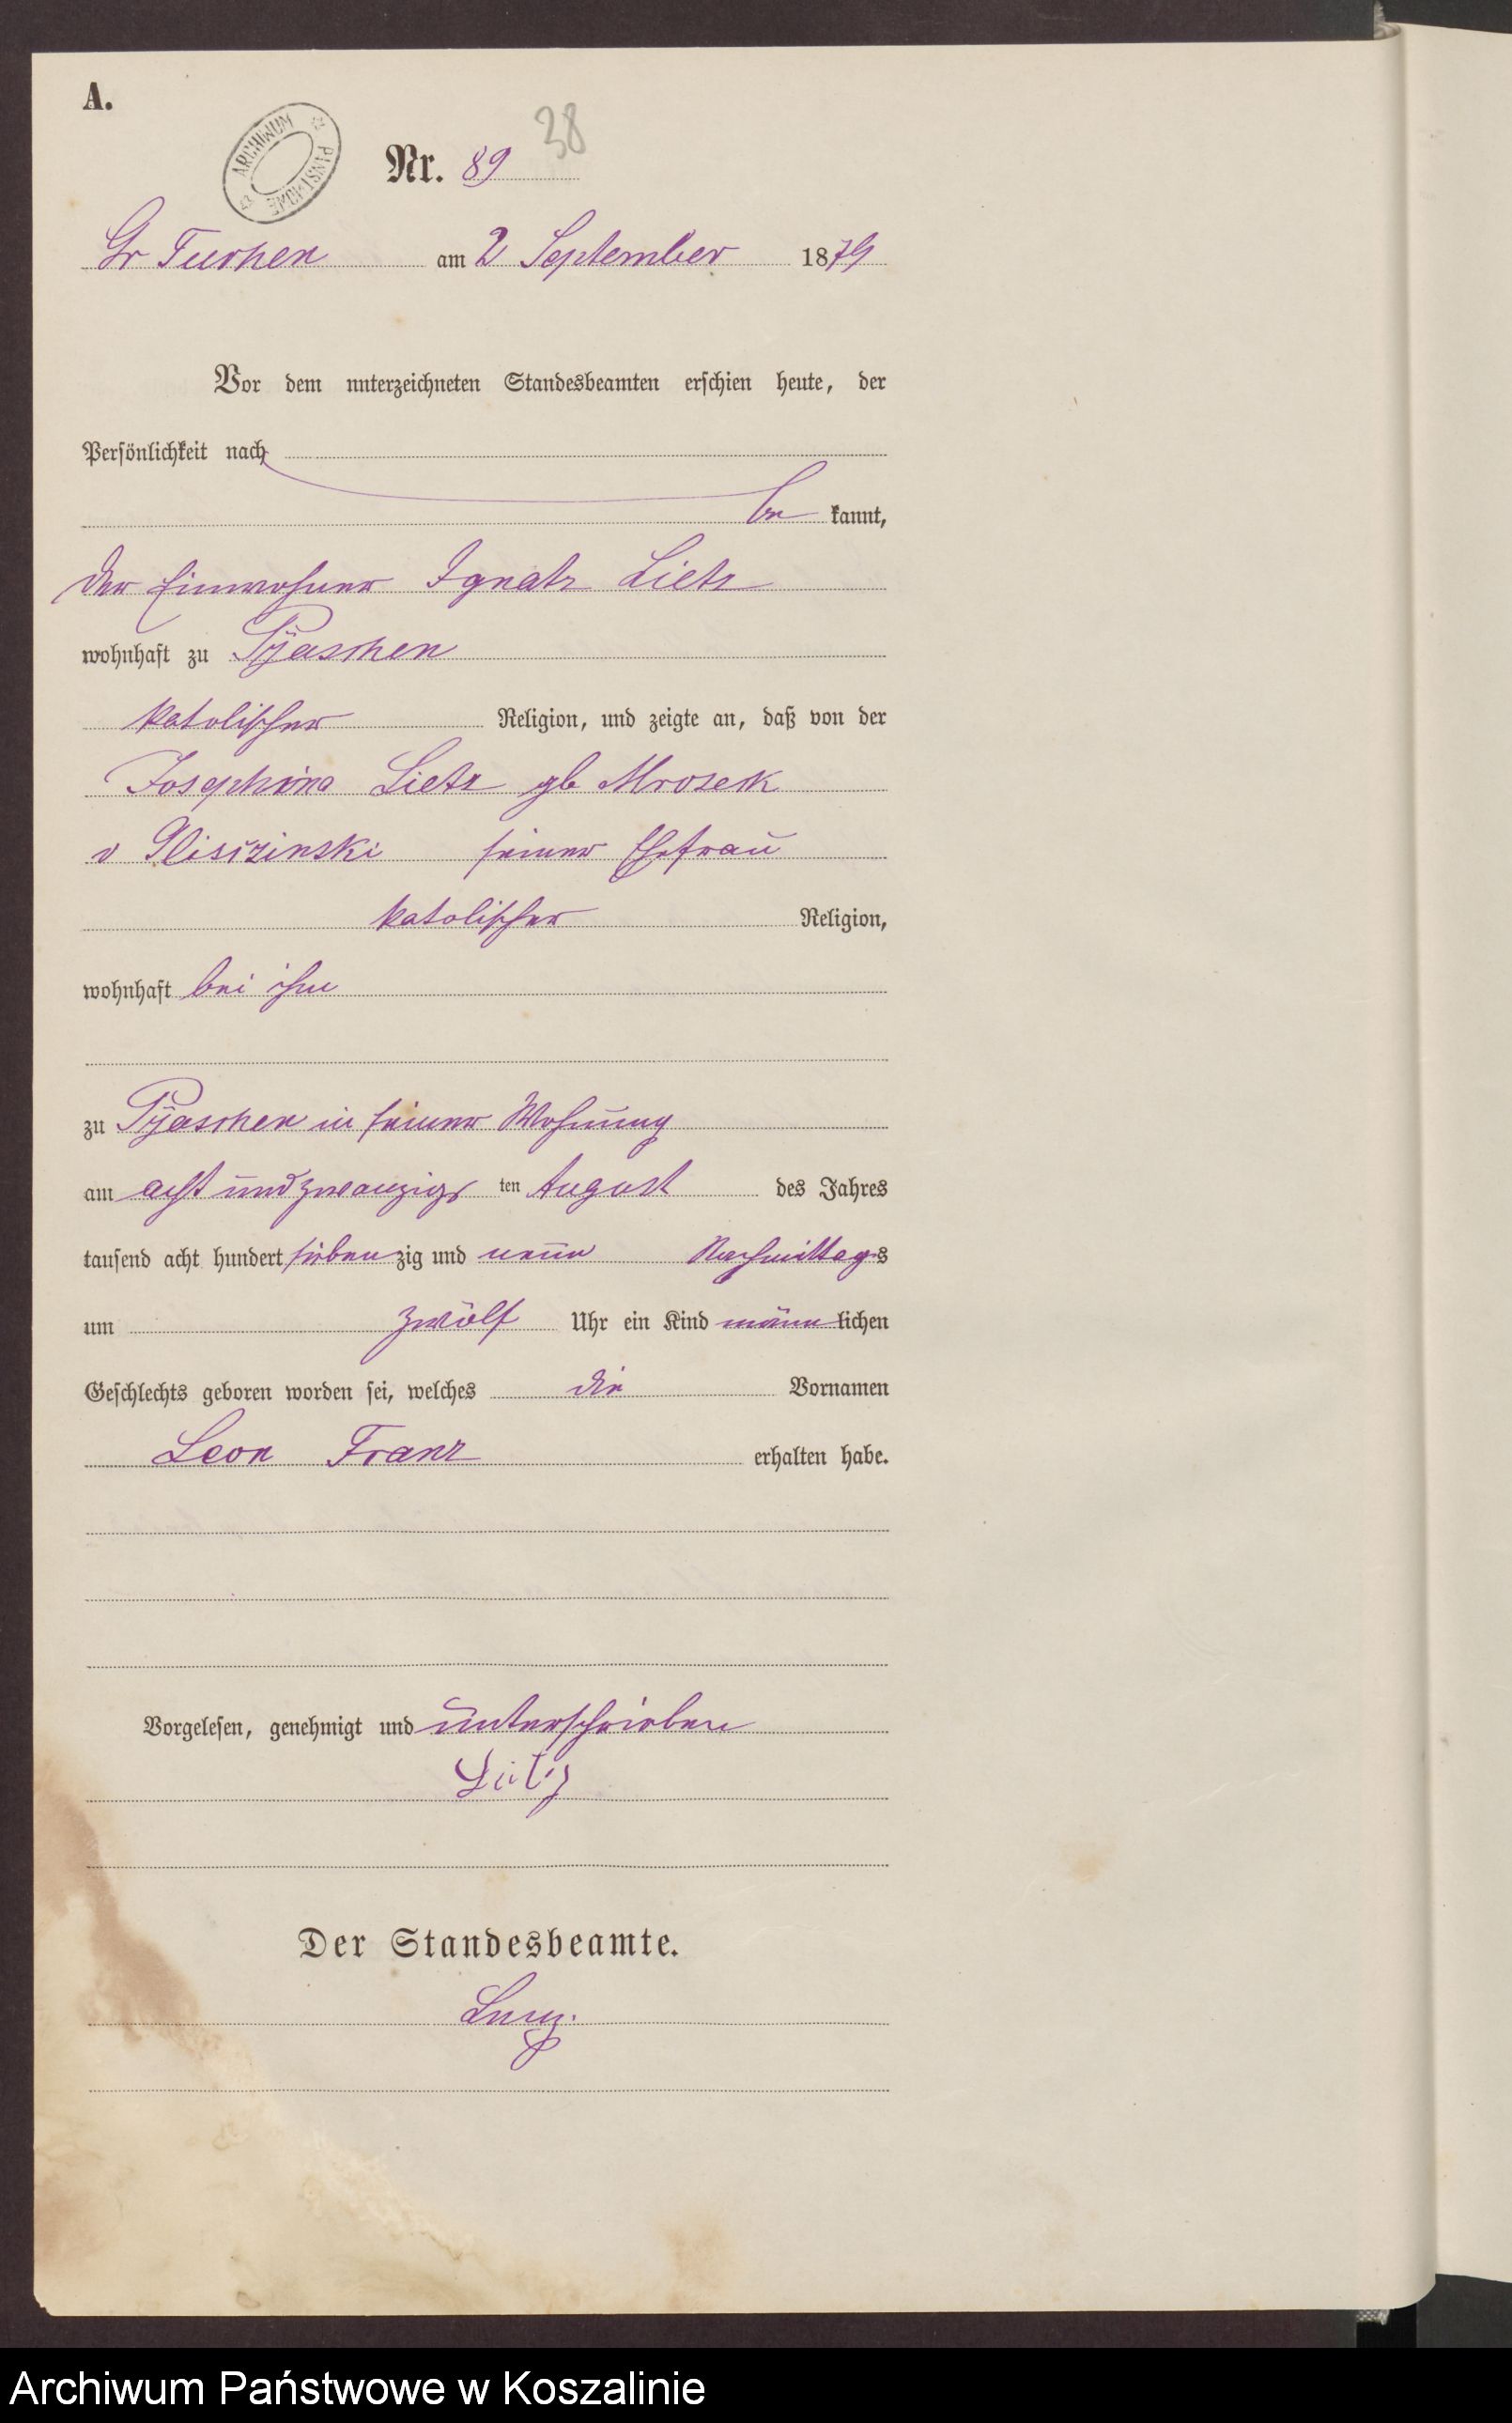 A.
ARCHIWUM PAŃSTWOWE
38
Nr. 89
Gr Tuchen am 2 September 1879
Vor dem unterzeichneten Standesbeamten erschien heute, der
Persönlichkeit nach
be kannt,
der Einwohner Ignatz Lietz
wohnhaft zu Pyaschen
katolischer Religion, und zeigte an, daß von der
Josephina Lietz gb Mroseck
v Gliszinski seiner Ehefrau
katolischer Religion,
wohnhaft bei ihm
zu Pyaschen in seiner Wohnung
am acht und zwanzigs ten August des Jahres
tausend acht hundert sieben zig und neun Nachmittags
um zwölf Uhr ein Kind männ lichen
Geschlechts geboren worden sei, welches die Vornamen
Leon Franz erhalten habe.
Vorgelesen, genehmigt und unterschrieben
Lietz
Der Standesbeamte.
Archiwum Państwowe w Koszalinie